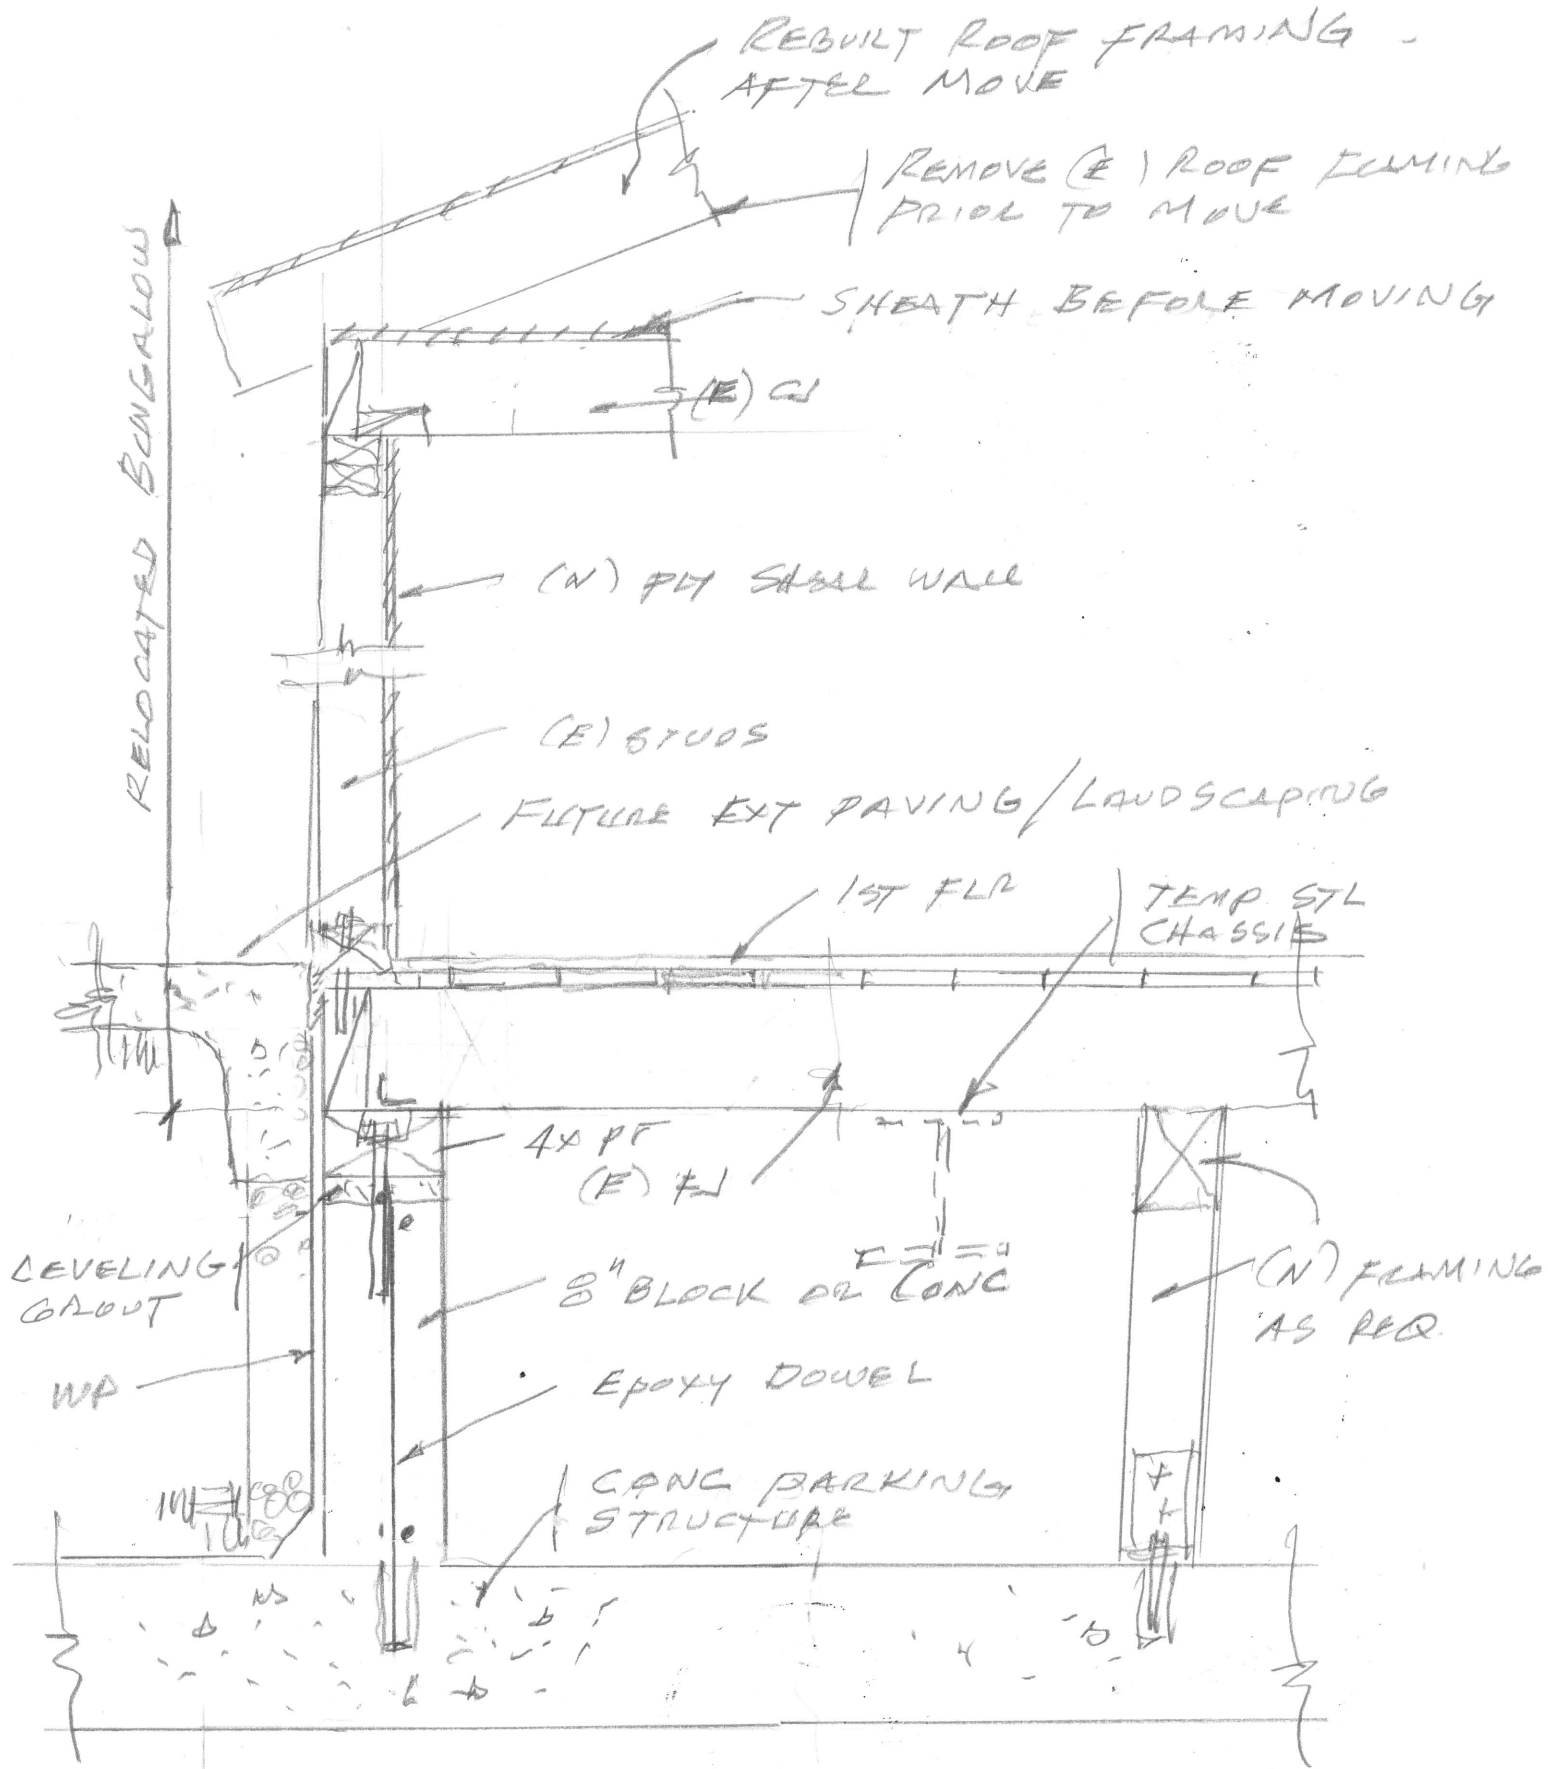 REBUILT ROOF FRAMING
AFTER MOVE
REMOVE (E) ROOF FRAMING
PRIOR TO MOVE
SHEATH BEFORE MOVING
(E) CJ
RELOCATED BUNGALOW
(N) PLY SHEAR WALL
(E) STUDS
FUTURE EXT PAVING/LANDSCAPING
1ST FLR
TEMP STL
CHASSIS
4X PT
(E) FJ
LEVELING
GROUT
8" BLOCK OR CONC
(N) FRAMING
AS REQ
WP
EPOXY DOWEL
CONC PARKING
STRUCTURE